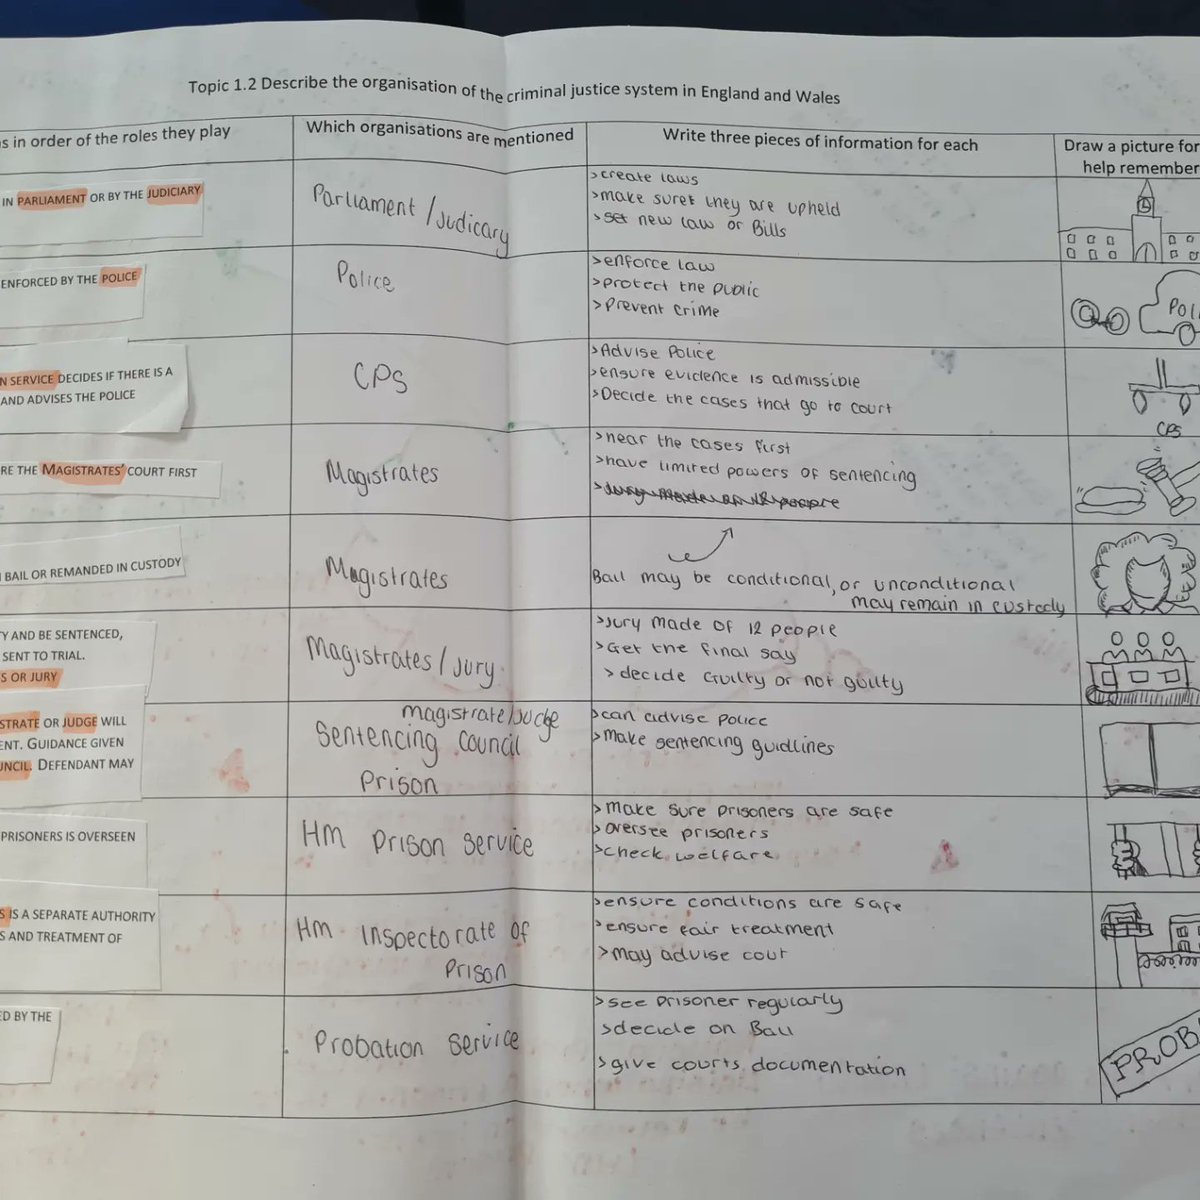 Topic 1.2 Describe the organisation of the criminal justice system in England and Wales
s in order of the roles they play
Which organisations are mentioned
Write three pieces of information for each
Draw a picture for
help remember
IN PARLIAMENT OR BY THE JUDICIARY
Parliament / Judicary
>create laws
>make suret they are upheld
>set new law or Bills
ENFORCED BY THE POLICE
Police
>enforce law
>protect the public
>Prevent crime
POLI
N SERVICE DECIDES IF THERE IS A
AND ADVISES THE POLICE
CPS
>Advise Police
>ensure evidence is admissible
>Decide the cases that go to court
CPS
RE THE MAGISTRATES' COURT FIRST
Magistrates
>hear the cases first
>have limited powers of sentencing
N BAIL OR REMANDED IN CUSTODY
Magistrates
Bail may be conditional, or unconditional
may remain in custody
Y AND BE SENTENCED,
SENT TO TRIAL.
S OR JURY
Magistrates / Jury
>Jury made of 12 people
>Get the final say
>decide Guilty or not guilty
STRATE OR JUDGE WILL
ENT. GUIDANCE GIVEN
UNCIL. DEFENDANT MAY
magistrate/Judge
Sentencing council
Prison
>can advise police
>make sentencing guidlines
PRISONERS IS OVERSEEN
Hm Prison service
>make sure prisoners are safe
>oversee prisoners
>check welfare
S IS A SEPARATE AUTHORITY
S AND TREATMENT OF
Hm inspectorate of
Prison
>ensure conditions are safe
>ensure fair treatment
>may advise court
ED BY THE
Probation service
>see prisoner regularly
>decide on Bail
>give courts documentation
PROB